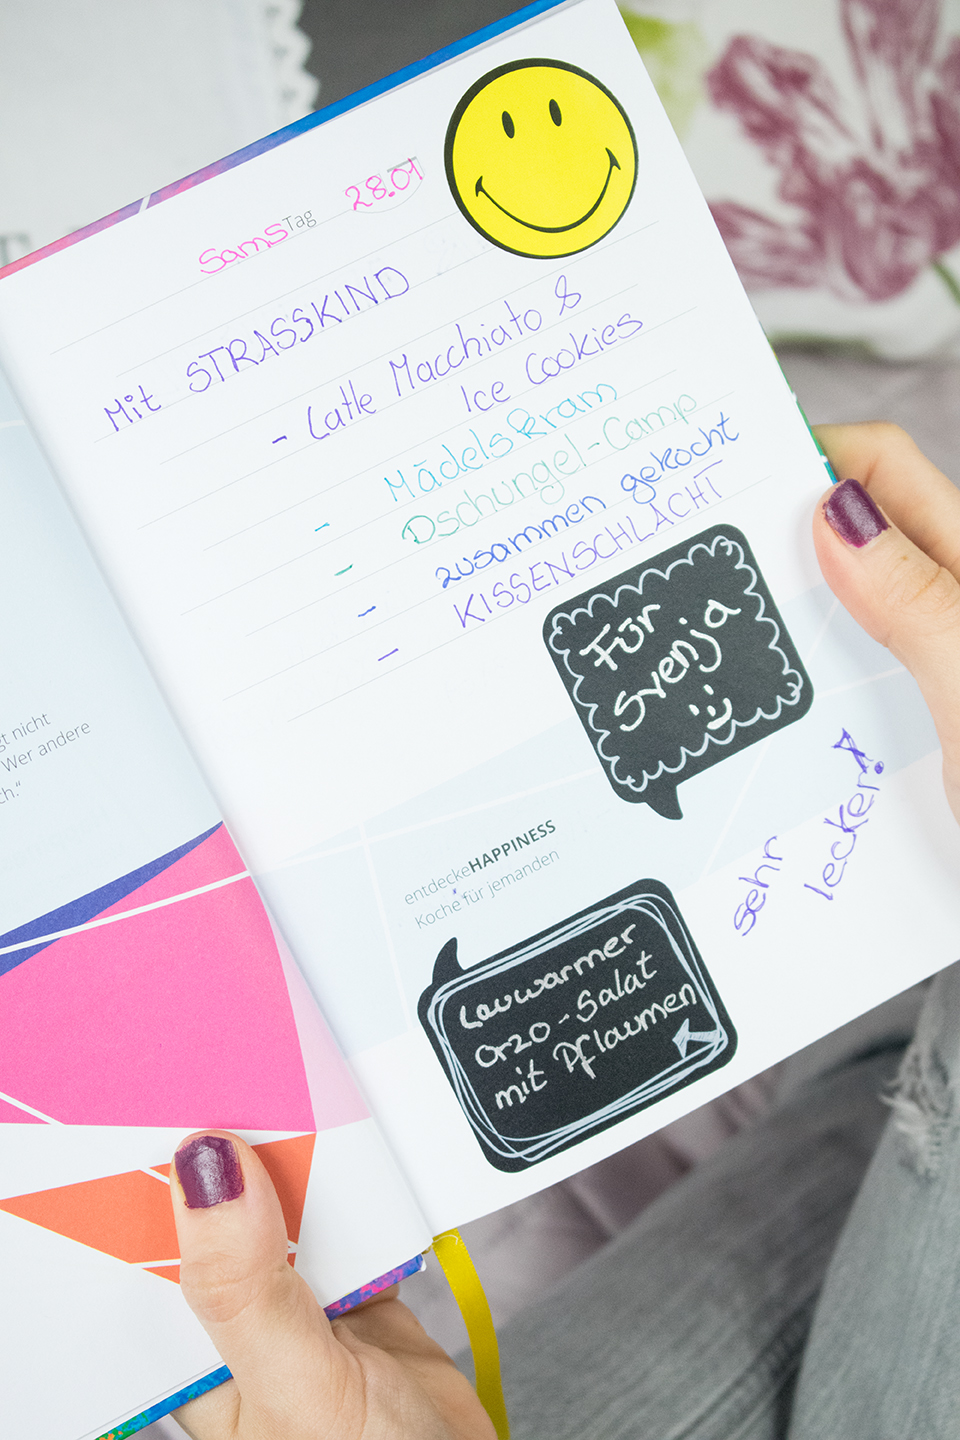 SamsTag 28.01
Mit STRASSKIND
- Latte Macchiato &
Ice Cookies
- Mädelskram
- Dschungel-Camp
- zusammen gekocht
- KISSENSCHLACHT
Für
Svenja
:)
entdeckeHAPPINESS
Koche für jemanden
Lauwarmer
Orzo-Salat
mit Pflaumen
sehr
lecker!
gt nicht
Wer andere
ch.“